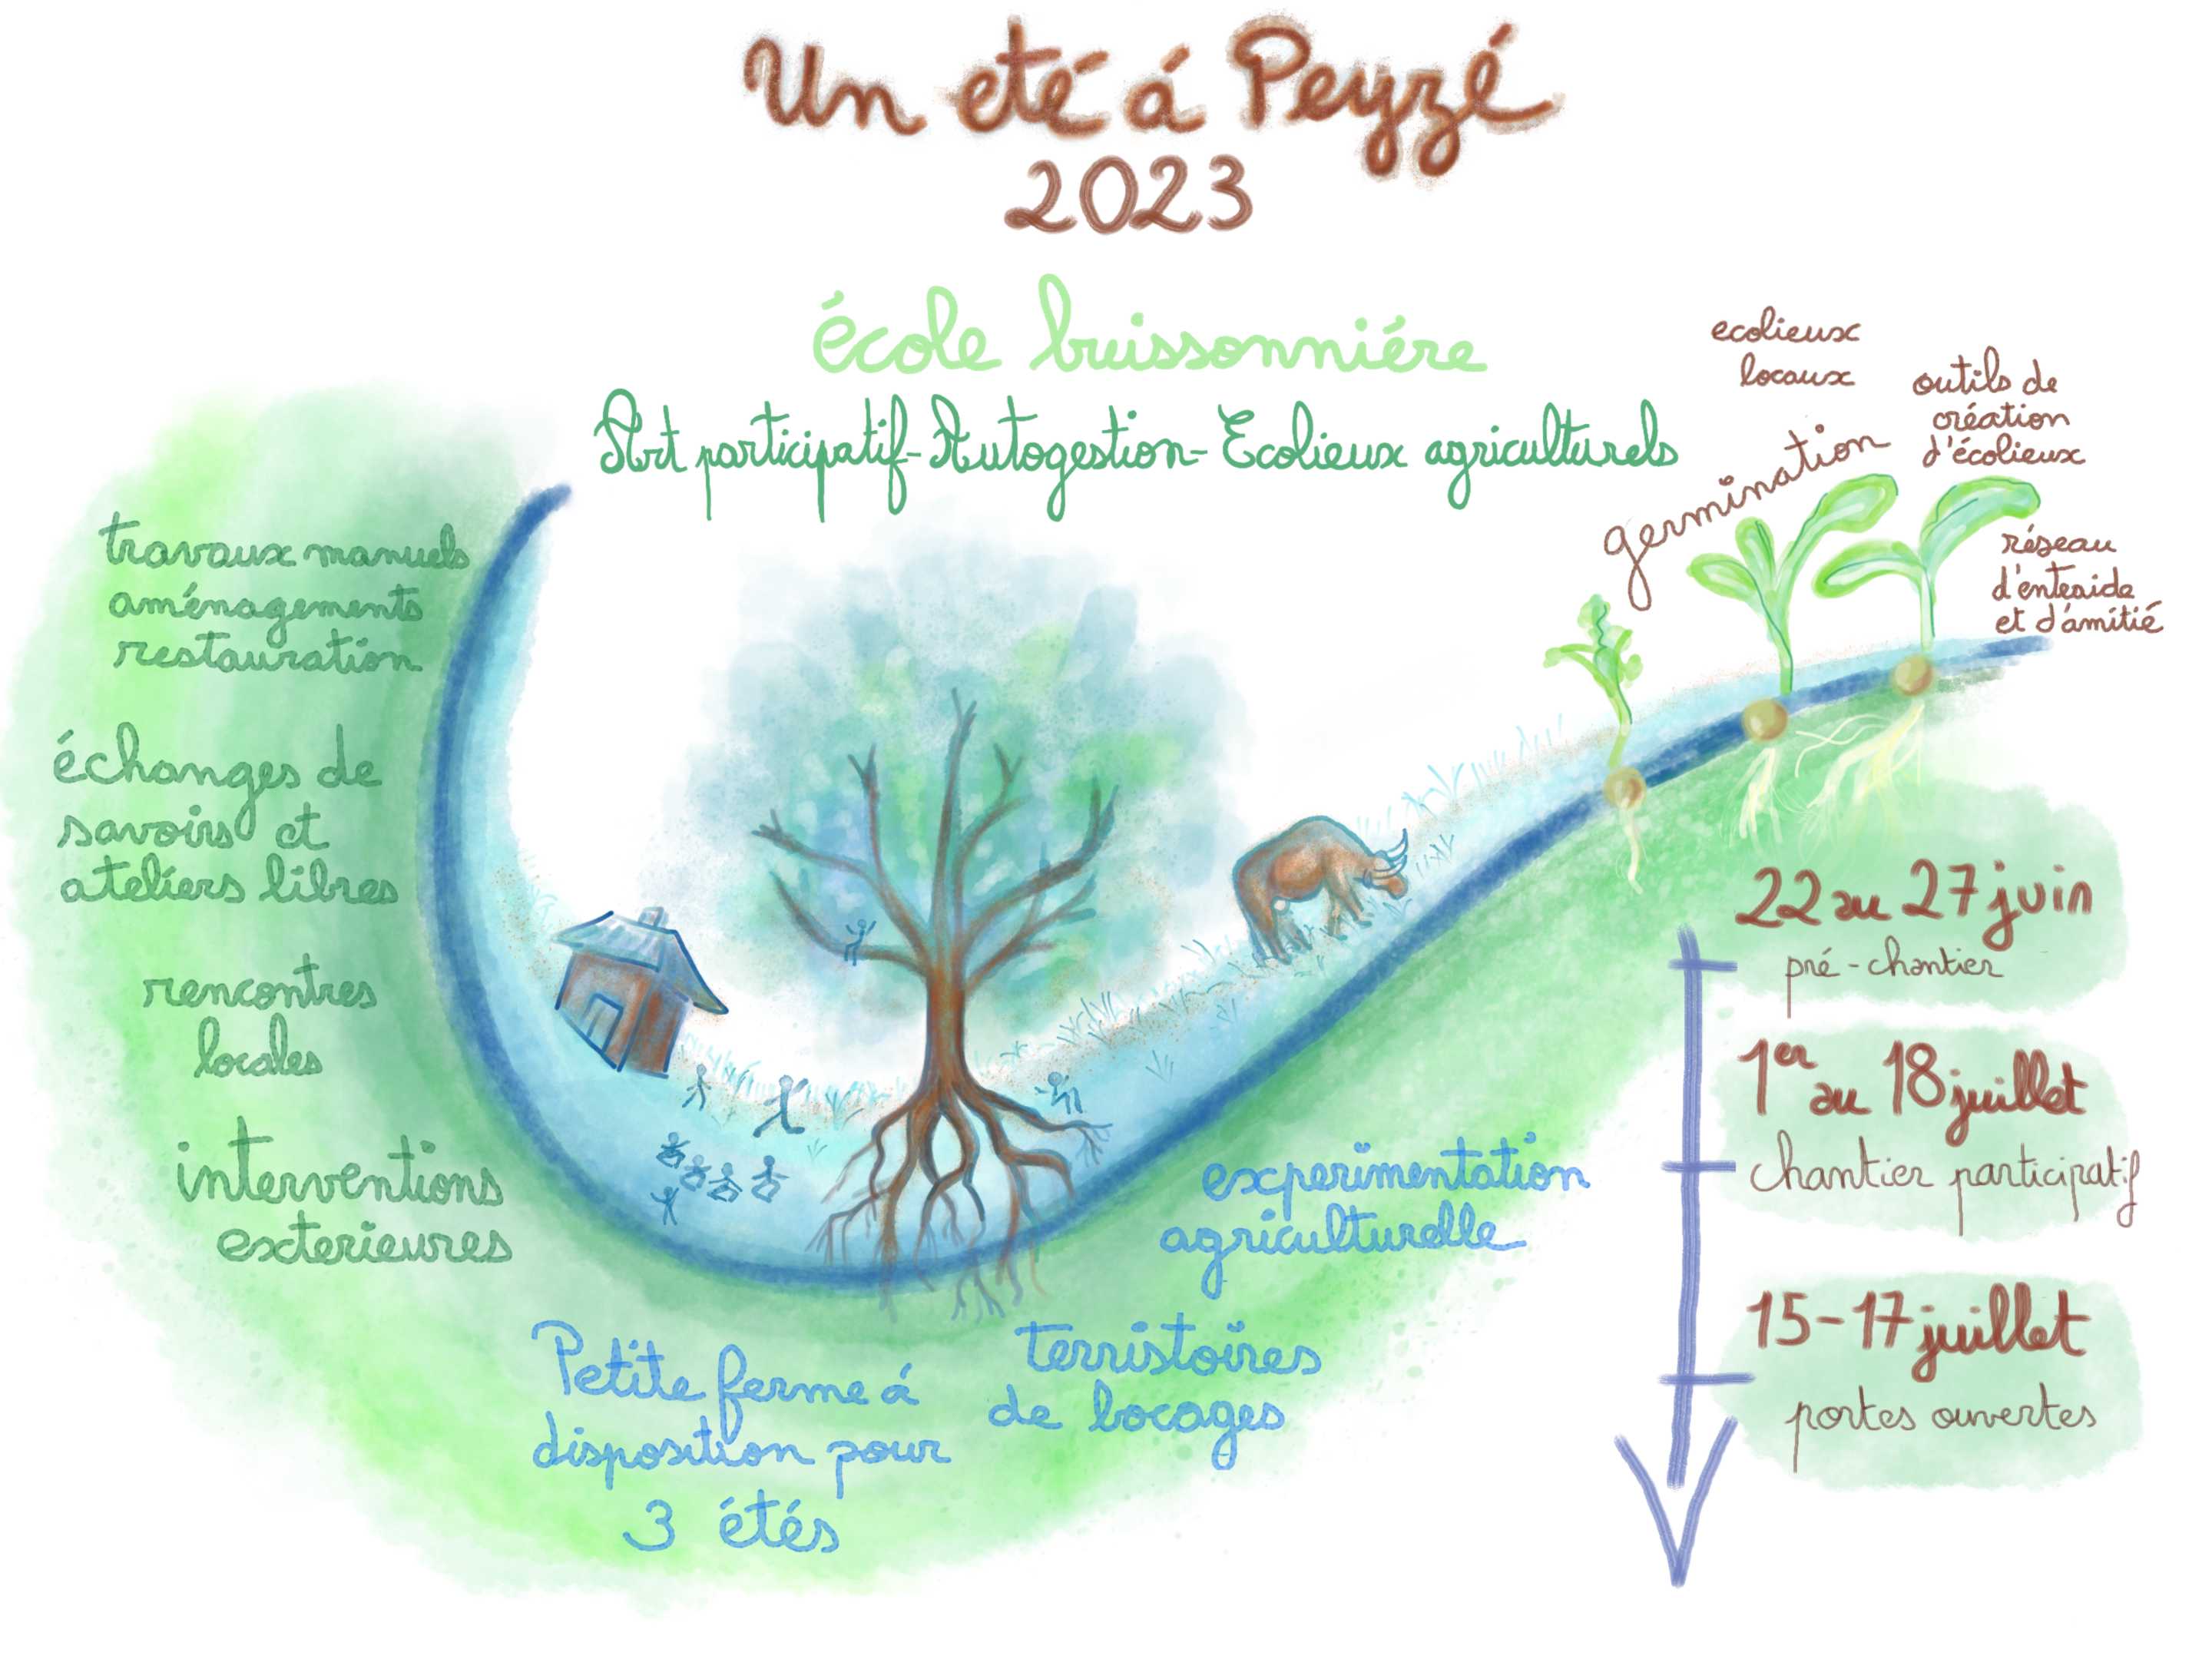 Un eté á Peyzé
2023
école buissonniére
Art participatif-Autogestion-Ecolieux agriculturels
ecolieux
locaux
outils de
création
d'écolieux
germination
réseau
d'enteaide
et d'amitié
travaux manuels
aménagements
restauration
échanges de
savoirs et
ateliers libres
rencontres
locales
interventions
exterieures
Petite ferme á
disposition pour
3 étés
terristoires
de bocages
experimentation
agriculturelle
22 au 27 juin
pré-chantier
1er au 18 juillet
chantier participatif
15-17 juillet
portes ouvertes